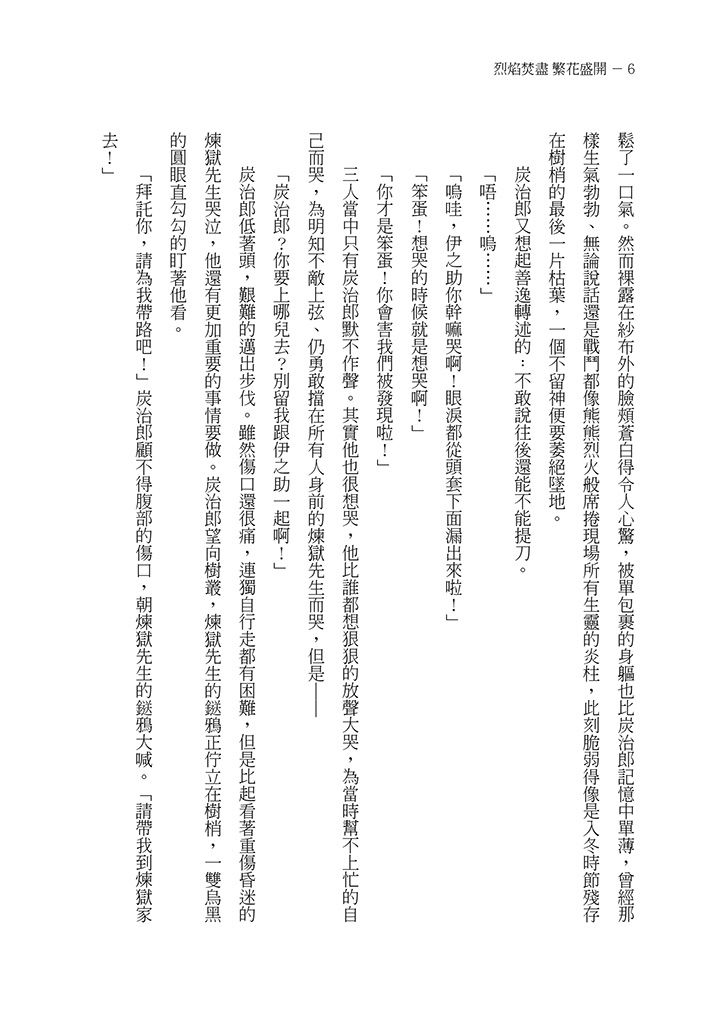 烈焰焚盡 繁花盛開 － 6
鬆了一口氣。然而裸露在紗布外的臉頰蒼白得令人心驚，被單包裹的身軀也比炭治郎記憶中單薄，曾經那
樣生氣勃勃、無論說話還是戰鬥都像熊熊烈火般席捲現場所有生靈的炎柱，此刻脆弱得像是入冬時節殘存
在樹梢的最後一片枯葉，一個不留神便要萎絕墜地。
炭治郎又想起善逸轉述的：不敢說往後還能不能提刀。
「唔……嗚……」
「嗚哇，伊之助你幹嘛哭啊！眼淚都從頭套下面漏出來啦！」
「笨蛋！想哭的時候就是想哭啊！」
「你才是笨蛋！你會害我們被發現啦！」
三人當中只有炭治郎默不作聲。其實他也很想哭，他比誰都想狠狠的放聲大哭，為當時幫不上忙的自
己而哭，為明知不敵上弦、仍勇敢擋在所有人身前的煉獄先生而哭，但是——
「炭治郎？你要上哪兒去？別留我跟伊之助一起啊！」
炭治郎低著頭，艱難的邁出步伐。雖然傷口還很痛，連獨自行走都有困難，但是比起看著重傷昏迷的
煉獄先生哭泣，他還有更加重要的事情要做。炭治郎望向樹叢，煉獄先生的鎹鴉正佇立在樹梢，一雙烏黑
的圓眼直勾勾的盯著他看。
「拜託你，請為我帶路吧！」炭治郎顧不得腹部的傷口，朝煉獄先生的鎹鴉大喊。「請帶我到煉獄家
去！」